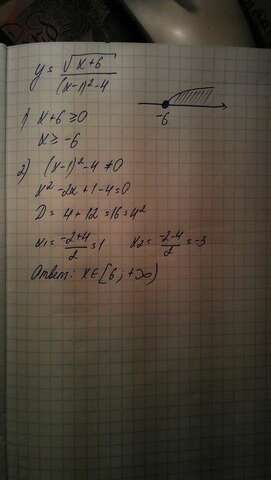 y = √(x+6) / ((x-1)²-4)
-6
1) x+6 ≥ 0
x ≥ -6
2) (x-1)²-4 ≠ 0
x² -2x+1-4=0
D = 4+12=16=4²
x₁= (-2+4)/2 = 1 x₂= (-2-4)/2 = -3
Ответ: x∈[6; +∞)